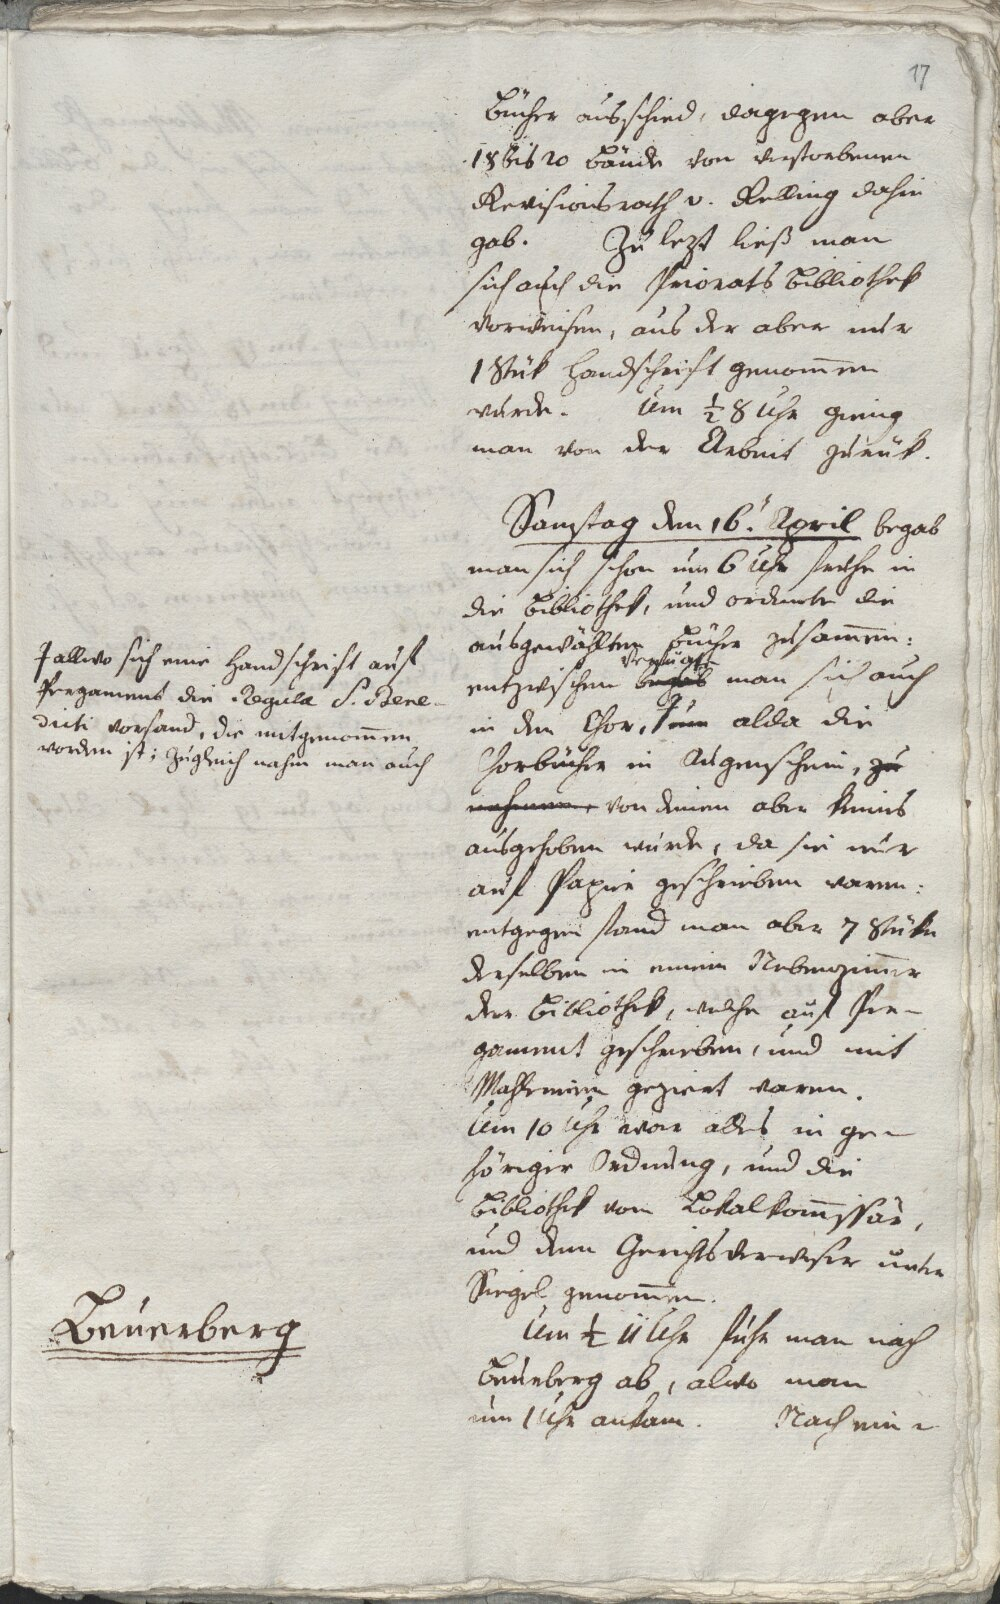 17
Bücher ausschied, dagegen aber
18 bis 20 Bände von verstorbenen
Revisionsrath v. Relling dahin
gab. Zu lezt ließ man
sich auch die Priorats Bibliothek
vorweisen, aus der aber nur
1 Stük Handschrift genom̅en
wurde. Um ½ 8 Uhr gieng
man von der Arbeit zurük.
Samstag den 16t April begab
man sich schon um 6 Uhr frühe in
die Bibliothek, und ordnete die
ausgewählten Bücher zusam̅en:
entzwischen begab verfügte man sich auch
in den Chor, um alda die
Chorbücher in Augenschein, zu
nehmen, von denen aber keines
ausgehoben wurde, da sie nur
auf Papier geschrieben waren:
entgegen fand man aber 7 Stüke
derselben in einem Nebenzim̅er
der Bibliothek, welche auf Per-
gament geschrieben, und mit
Mahlereien geziert waren.
Um 10 Uhr war alles in ge-
höriger Ordnung, und die
Bibliothek vom Lokalkom̅issär,
und dem Gerichtsverweser unter
Siegel genom̅en.
Um ½ 11 Uhr fuhr man nach
Beuerberg ab, alwo man
um 1 Uhr ankam. Nach ein-
allwo sich eine Handschrift auf
Pergament die Regula S. Bene-
dicti vorfand, die mitgenom̅en
worden ist; zugleich nahm man auch
Beuerberg